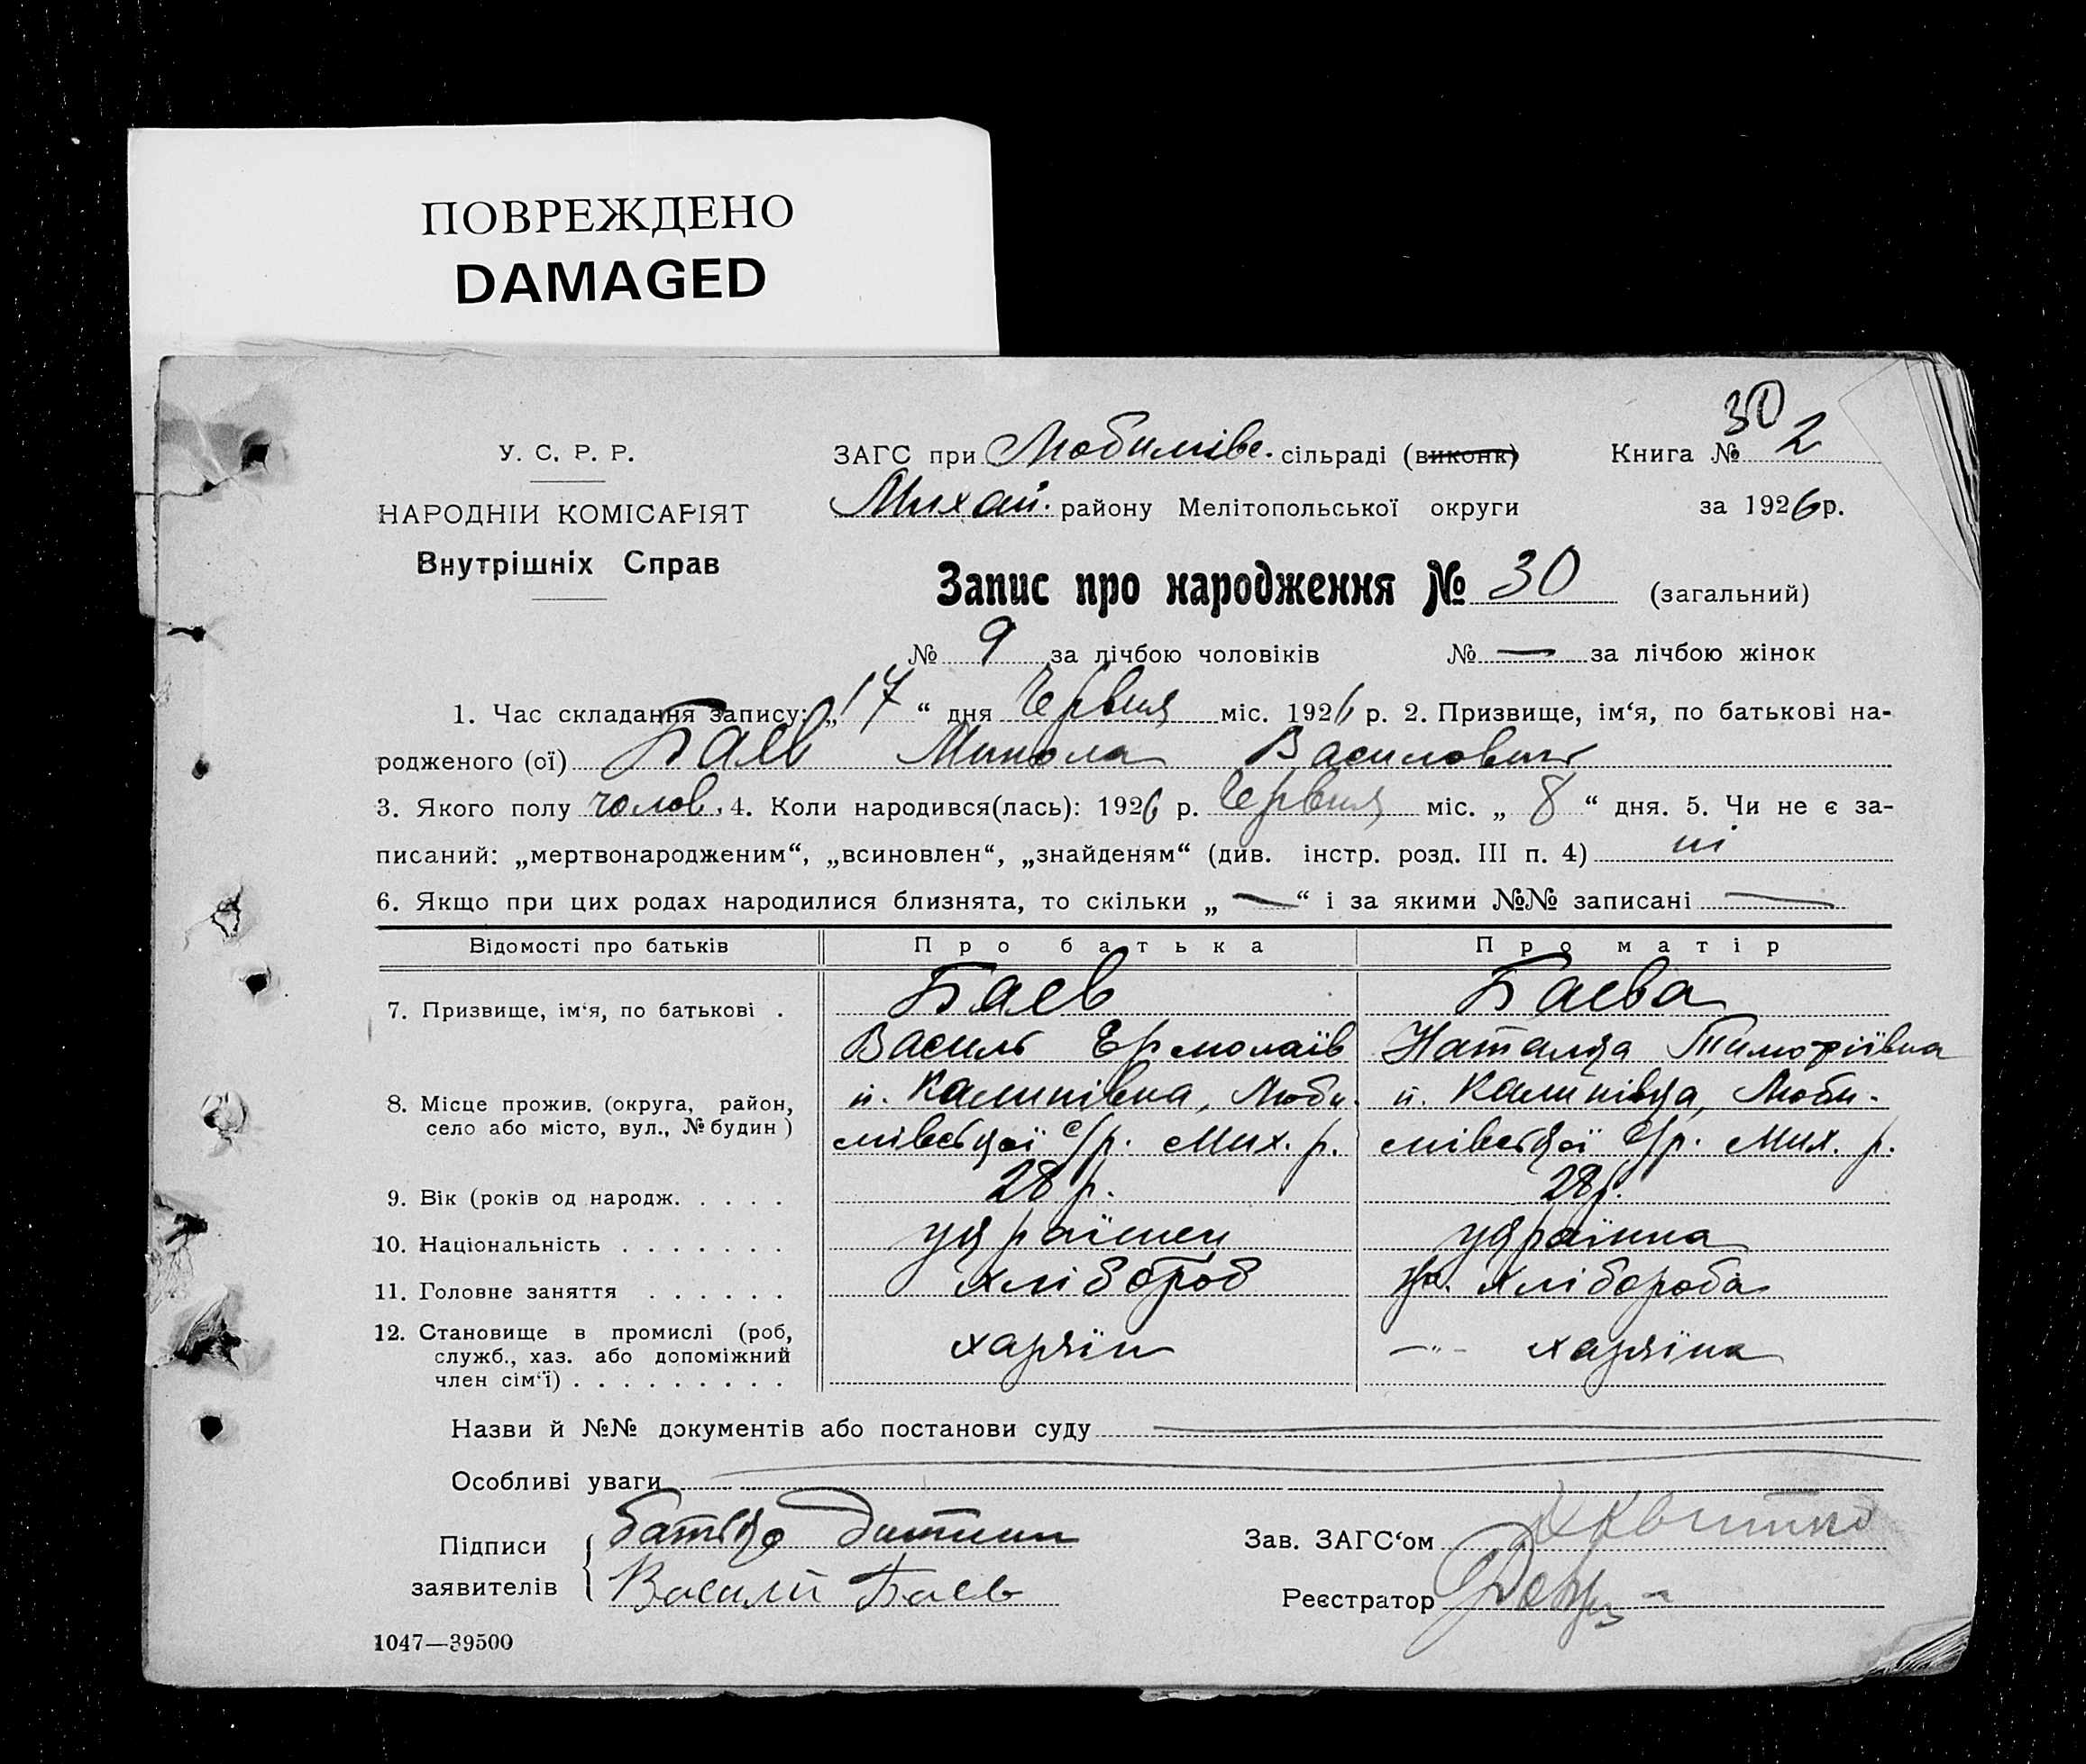 ПОВРЕЖДЕНО
DAMAGED
30
У. С. Р. Р.
НАРОДНІЙ КОМІСАРІЯТ
Внутрішніх Справ
ЗАГС при Любимівс. сільраді (виконк)
Михай. району Мелітопольської округи
Книга № 2
за 1926 р.
Запис про народження № 30 (загальний)
№ 9 за лічбою чоловіків № — за лічбою жінок
1. Час складання запису: „17“ дня Червня міс. 1926 р. 2. Призвище, ім‘я, по батькові на-
родженого (ої) Баєв Микола Василович
3. Якого полу чолов. 4. Коли народився(лась): 1926 р. Червня міс. „8“ дня. 5. Чи не є за-
писаний: „мертвонародженим“, „всиновлен“, „знайденям“ (див. інстр. розд. III п. 4) ні
6. Якщо при цих родах народилися близнята, то скільки „—“ і за якими №№ записані —
Відомості про батьків Про батька Про матір
7. Призвище, ім‘я, по батькові . Баєв Баєва
Василь Ермолаїв Наталка Тимофіївна
8. Місце прожив. (округа, район, село або місто, вул., № будин) п. Калинівка, Люби- п. Калинівка, Люби-
мівської с/р. Мих. р. мівської с/р. Мих. р.
9. Вік (років од народж. . . . . 28 р. 28 р.
10. Національність . . . . . . . українец українка
11. Головне заняття . . . . . . хлібороб хлібороба
12. Становище в промислі (роб,
служб., хаз. або допоміжний
член сім‘ї) . . . . . . . . . хазяїн —"— хазяїна
Назви й №№ документів або постанови суду
Особливі уваги
Підписи заявителів { батько дитини
Василій Баев
Зав. ЗАГС‘ом
Реєстратор
1047—39500